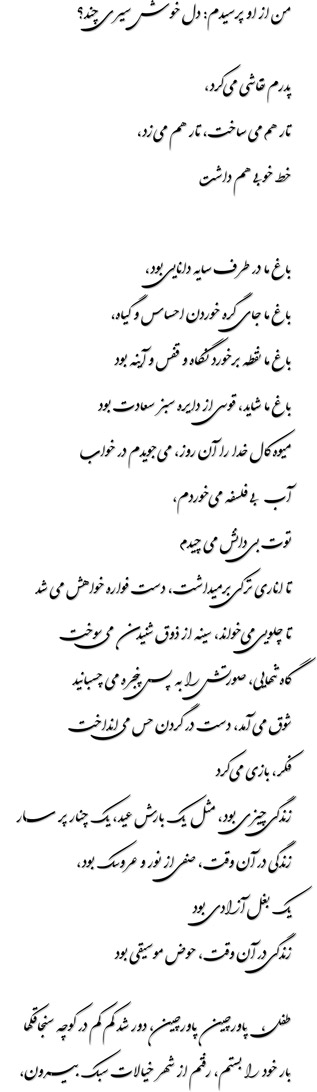 من از او پرسیدم: دل خوش سیری چند؟
پدرم نقاشی می‌کرد،
تار هم می ساخت، تار هم می زد،
خط خوبی هم داشت
باغ ما در طرف سایه دانایی بود،
باغ ما جای گره خوردن احساس و گیاه،
باغ ما نقطه برخورد نگاه و قفس و آینه بود
باغ ما شاید، قوسی از دایره سبز سعادت بود
میوه کال خدا را آن روز، می جویدم در خواب
آب بی فلسفه می خوردم،
توت بی دانش می چیدم
تا اناری ترکی برمیداشت، دست فواره خواهش می شد
تا چلویی می‌خواند، سینه از ذوق شنیدن می سوخت
گاه تنهایی، صورتش را به پس پنجره می چسبانید
شوق می آمد، دست در گردن حس می انداخت
فکر، بازی می‌کرد
زندگی چیزی بود، مثل یک بارش عید، یک چنار پر سار
زندگی در آن وقت، صفی از نور و عروسک بود،
یک بغل آزادی بود
زندگی در آن وقت، حوض موسیقی بود
طفل، پاورچین پاورچین، دور شد کم کم در کوچه سنجاقکها
بار خود را بستم، رفتم از شهر خیالات سبک بیرون،